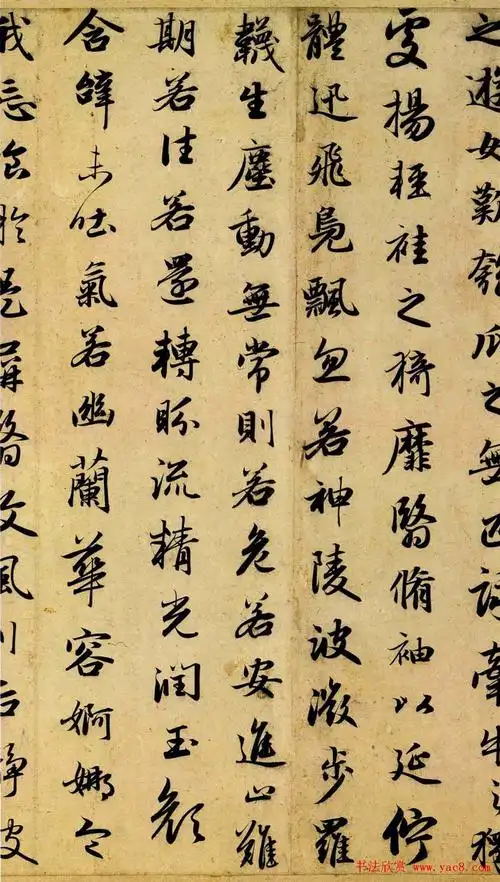 之遊女歎匏瓜之無匹詠牽牛之獨
處揚輕袿之猗靡翳脩袖以延佇
體迅飛鳧飄忽若神陵波微步羅
韈生塵動無常則若危若安進止難
期若往若還轉眄流精光潤玉顏
含辭未吐氣若幽蘭華容婀娜令
我忘飡於是屏翳收風川后靜波
书法欣赏 www.yac8.com